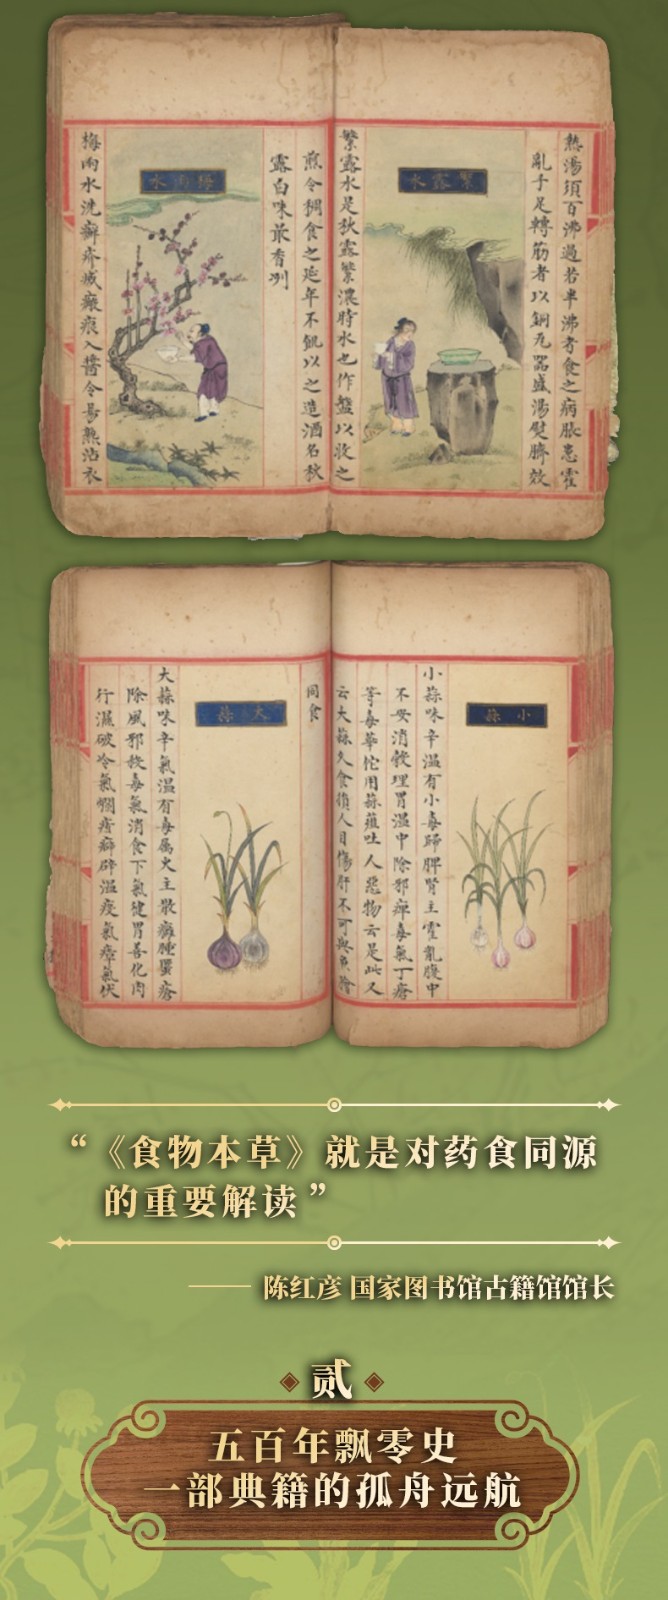 熱湯須百沸過若半沸者食之病脹患霍
亂手足轉筋者以銅瓦器盛湯熨臍效
繁露水
繁露水是秋露繁濃時水也作盤以收之
煎令稠食之延年不飢以之造酒名秋
露白味最香冽
梅雨水
梅雨水洗癬疥滅瘢痕入醬令易熟沾衣
小蒜
小蒜味辛溫有小毒歸脾腎主霍亂腹中
不安消穀理胃溫中除邪痺毒氣丁瘡
等毒華佗用蒜虀吐人惡物云是此又
云大蒜久食損人目傷肝不可與魚膾
同食
大蒜
大蒜味辛氣溫有毒屬火主散癰腫䘌瘡
除風邪殺毒氣消食下氣健胃善化肉
行濕破冷氣爛痃癖辟溫疫氣瘴氣伏
“《食物本草》就是对药食同源
的重要解读”
—— 陈红彦 国家图书馆古籍馆馆长
贰
五百年飘零史
一部典籍的孤舟远航